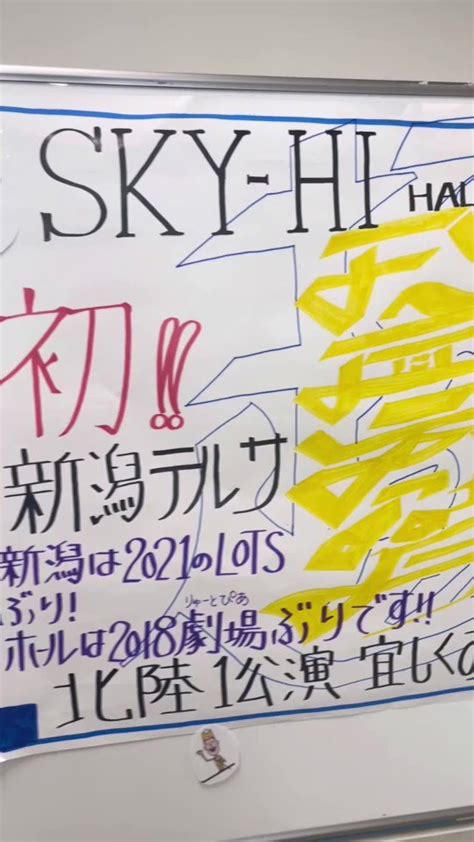 SKY-HI HAL
初!!
新潟テルサ
新潟は2021のLOTS
ぶり!
りゅーとぴあ
ホールは2018劇場ぶりです!!
北陸1公演 宜しく